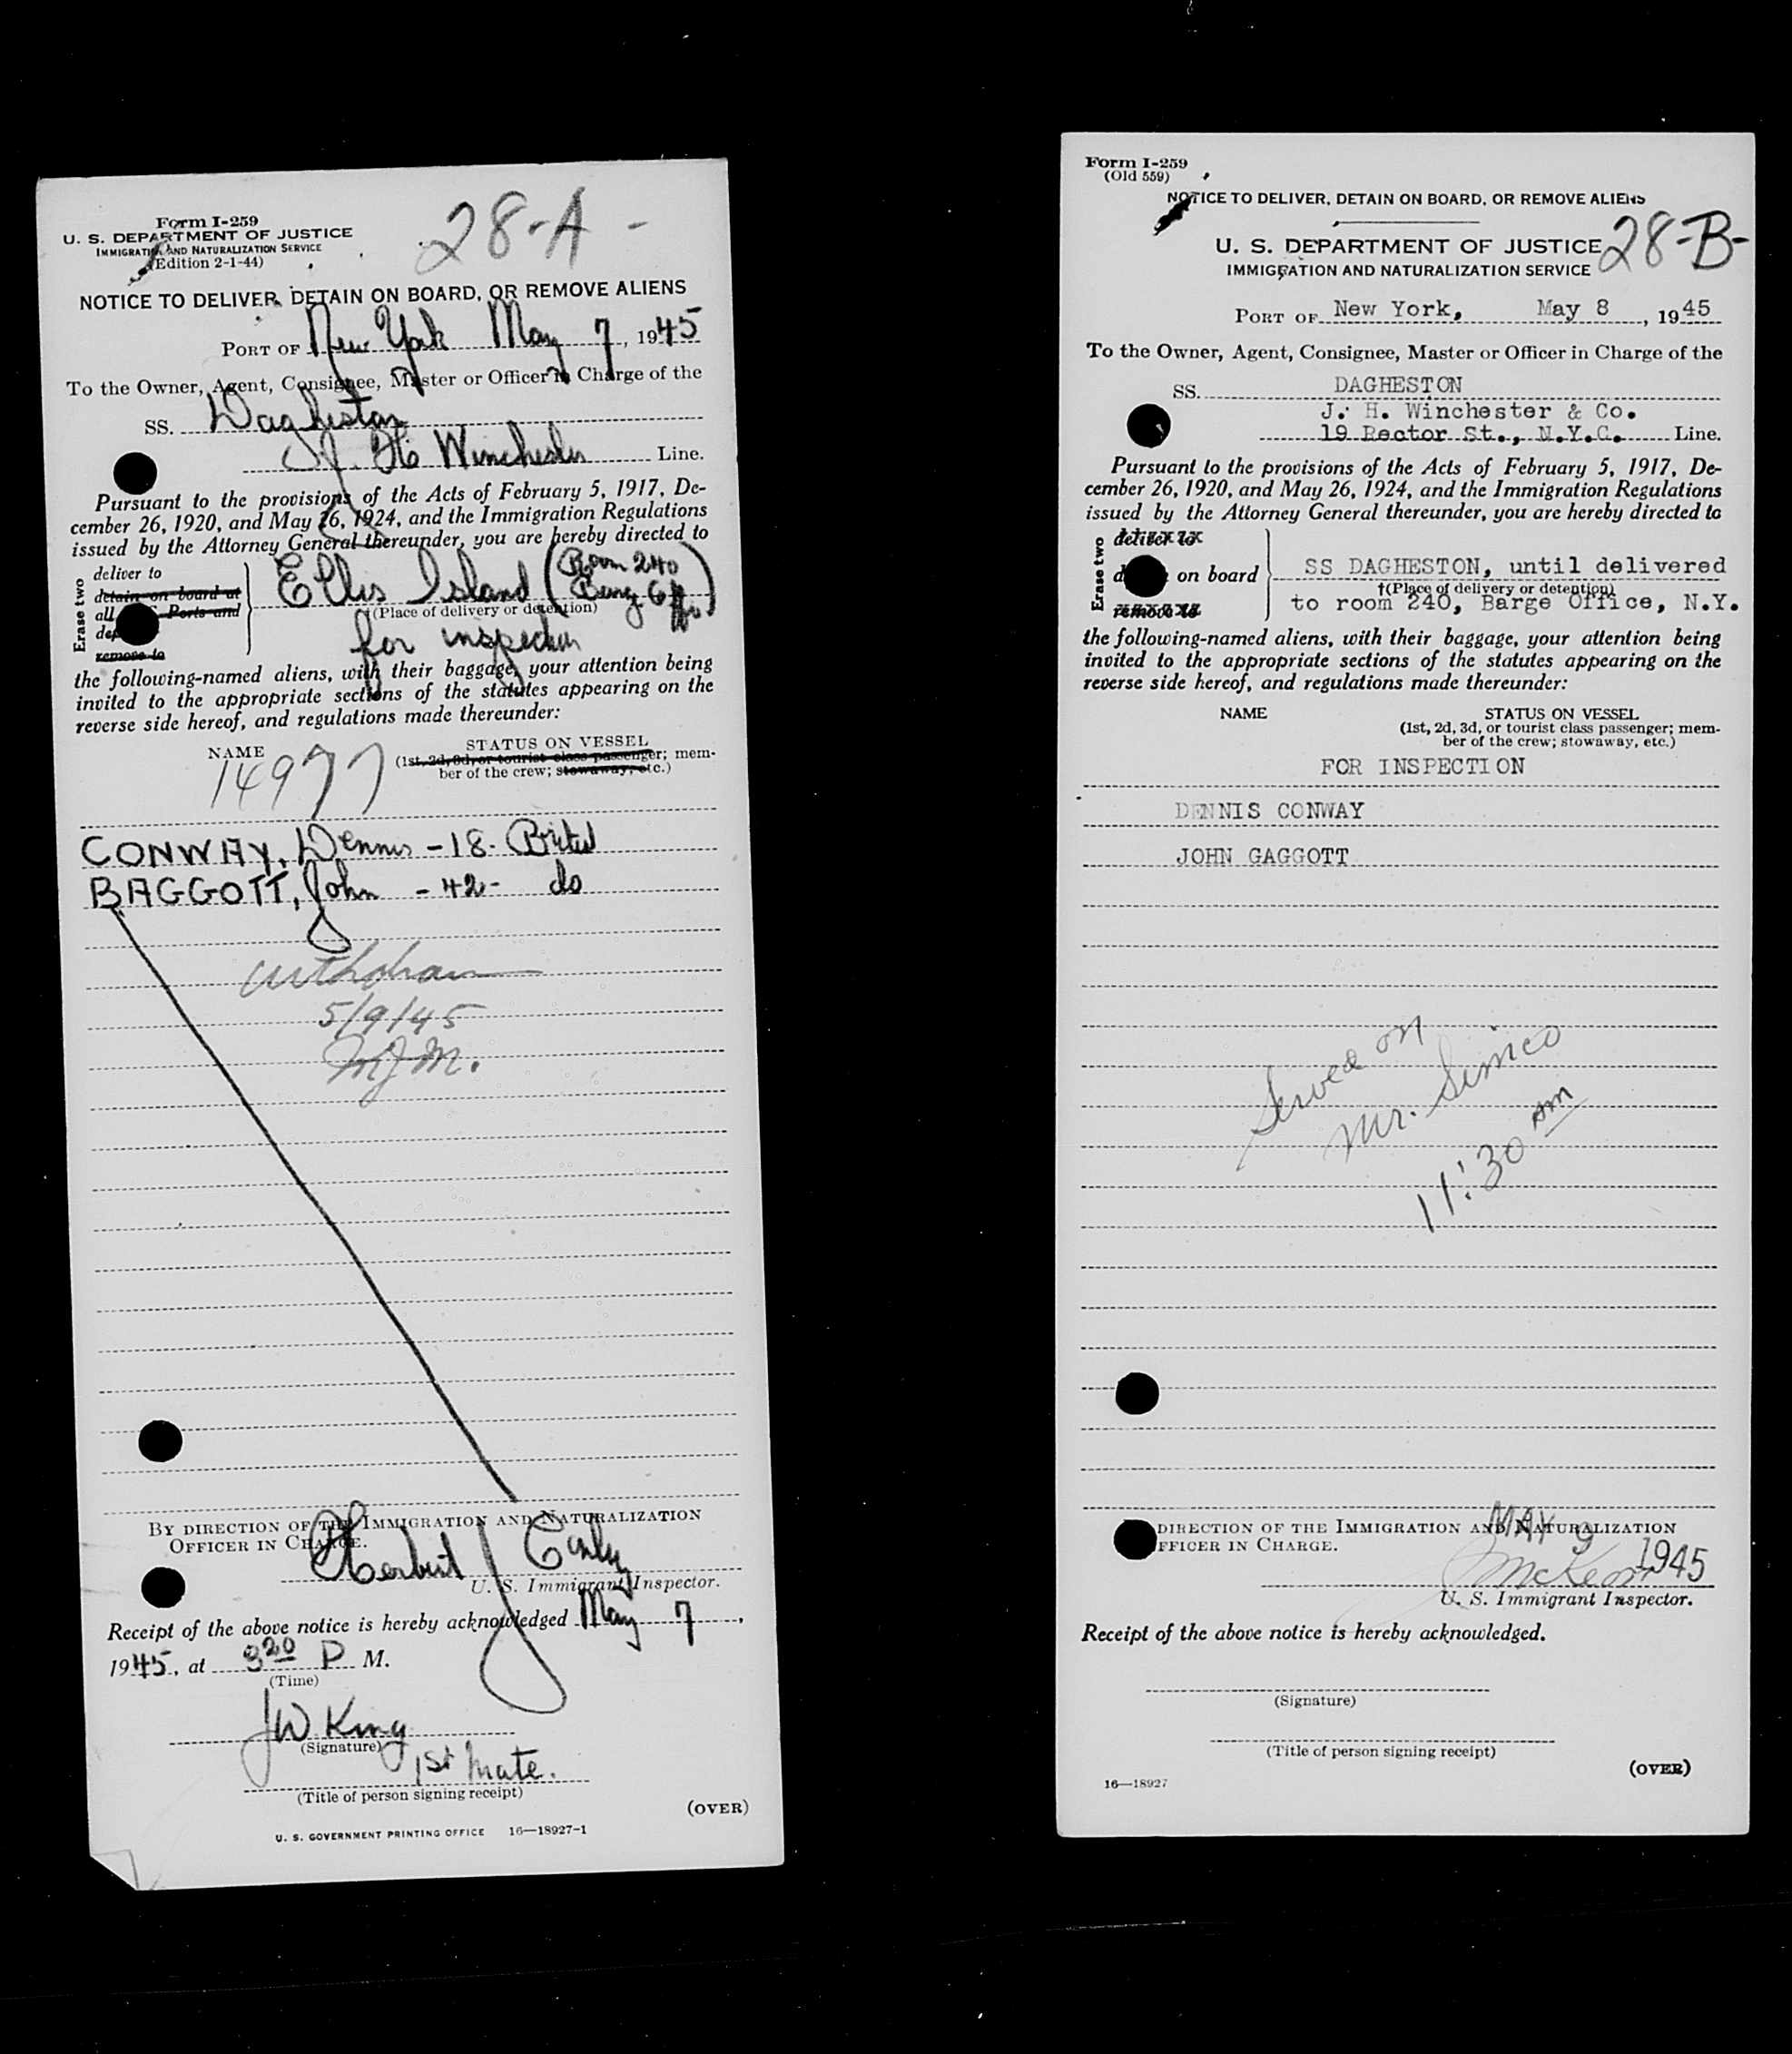 Form I-259
U. S. DEPARTMENT OF JUSTICE
IMMIGRATION AND NATURALIZATION SERVICE
(Edition 2-1-44)
28-A-
NOTICE TO DELIVER, DETAIN ON BOARD, OR REMOVE ALIENS
PORT OF New York May 7, 1945
To the Owner, Agent, Consignee, Master or Officer in Charge of the
SS. Dagheston
J. H. Winchester Line.
Pursuant to the provisions of the Acts of February 5, 1917, De-
cember 26, 1920, and May 26, 1924, and the Immigration Regulations
issued by the Attorney General thereunder, you are hereby directed to
Erase two
deliver to
detain on board at
all Ports and
remove to
Ellis Island (Room 240
Barge Off)
†(Place of delivery or detention)
for inspection
the following-named aliens, with their baggage, your attention being
invited to the appropriate sections of the statutes appearing on the
reverse side hereof, and regulations made thereunder:
NAME STATUS ON VESSEL
(1st, 2d, 3d, or tourist class passenger; mem-
ber of the crew; stowaway, etc.)
14977
CONWAY, Dennis - 18 - British
BAGGOTT, John - 42 - do
Withdrawn
5/9/45
MJM.
BY DIRECTION OF THE IMMIGRATION AND NATURALIZATION
OFFICER IN CHARGE.
Herbert J
U. S. Immigrant Inspector.
Receipt of the above notice is hereby acknowledged May 7,
1945, at 3 20 P M.
(Time)
JW King
(Signature)
1st Mate.
(Title of person signing receipt)
(OVER)
U. S. GOVERNMENT PRINTING OFFICE 16—18927-1
Form I-259
(Old 559)
NOTICE TO DELIVER, DETAIN ON BOARD, OR REMOVE ALIENS
28-B-
U. S. DEPARTMENT OF JUSTICE
IMMIGRATION AND NATURALIZATION SERVICE
PORT OF New York, May 8, 1945
To the Owner, Agent, Consignee, Master or Officer in Charge of the
SS. DAGHESTON
J. H. Winchester & Co.
19 Rector St., N.Y.C. Line.
Pursuant to the provisions of the Acts of February 5, 1917, De-
cember 26, 1920, and May 26, 1924, and the Immigration Regulations
issued by the Attorney General thereunder, you are hereby directed to
Erase two
deliver to
on board
remove to
SS DAGHESTON, until delivered
†(Place of delivery or detention)
to room 240, Barge Office, N.Y.
the following-named aliens, with their baggage, your attention being
invited to the appropriate sections of the statutes appearing on the
reverse side hereof, and regulations made thereunder:
NAME STATUS ON VESSEL
(1st, 2d, 3d, or tourist class passenger; mem-
ber of the crew; stowaway, etc.)
FOR INSPECTION
DENNIS CONWAY
JOHN GAGGOTT
Served on
Mr. Simico
11:30 AM
DIRECTION OF THE IMMIGRATION AND NATURALIZATION
FFICER IN CHARGE.
MAY 9 1945
McKeon
U. S. Immigrant Inspector.
Receipt of the above notice is hereby acknowledged.
(Signature)
(Title of person signing receipt)
(OVER)
16—18927